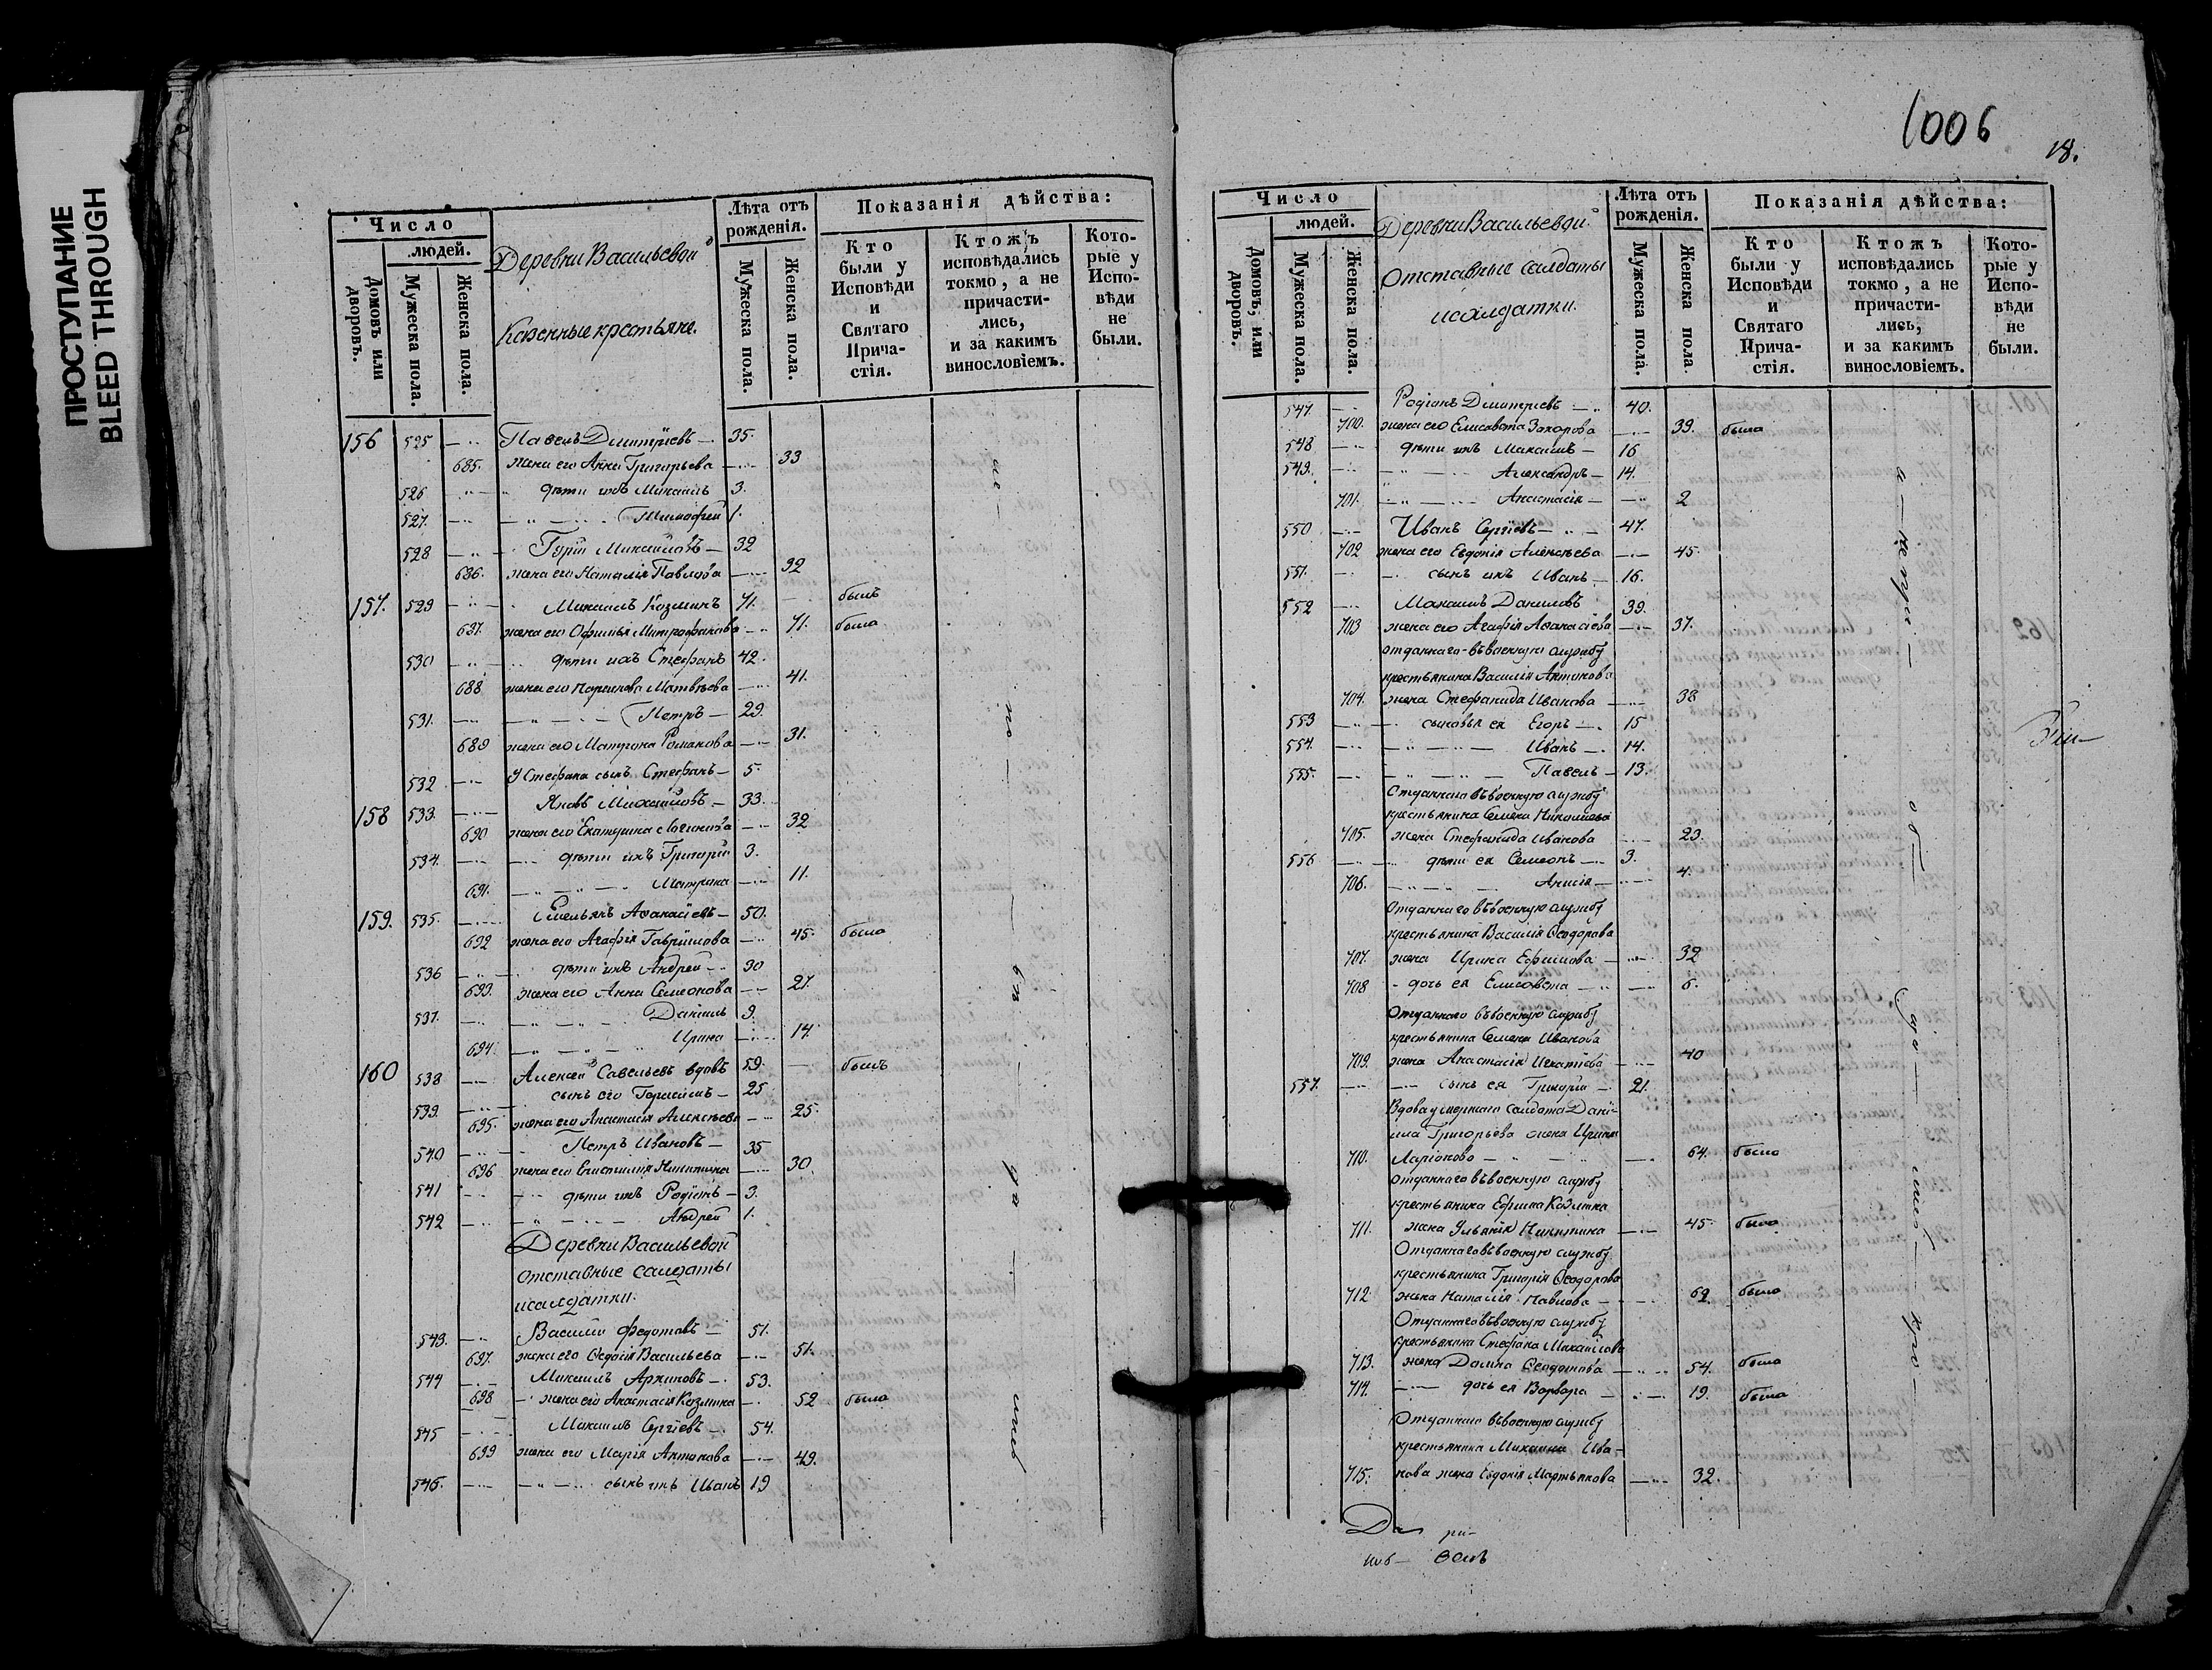 ПРОСТУПАНИЕ
BLEED THROUGH
Число
людей.
Домовъ или дворовъ.
Мужеска пола.
Женска пола.
Деревни Васильевой
Казенные крестьяне.
Лѣта отъ рожденія.
Мужеска пола.
Женска пола.
Показанія дѣйства:
Кто были у Исповѣди и Святаго Прича-стія.
Ктожъ исповѣдались токмо, а не причасти-лись, и за какимъ винословіемъ.
Кото-рые у Испо-вѣди не были.
156 525 Павелъ Дмитріевъ 35.
685. жена его Анна Григорьева 33
526 дѣти ихъ Михаилъ 3.
527. Тимофей 1.
528 Михайловъ 32
686. жена его Наталія Павлова 32
157. 529 Михаилъ Козминъ 71. былъ
687. жена его Офимья Митрофанова 71. была
530 дѣти ихъ Стефанъ 42.
688 жена его Матвѣева 41.
531. Петръ 29.
689 жена его Матрона Романова 31.
532 У Стефана сынъ Стефанъ 5.
158 533. Яковъ Михайловъ 33.
690 жена его Екатерина 32
534. дѣти ихъ Григорій 3.
691. Матрона 11.
159. 535. Емельянъ Афанасіевъ 50.
692 жена его Агафія Гавріилова 45. была
536 дѣти ихъ Андрей 30
693. жена его Анна Семеонова 27.
537. Даніилъ 9.
694. Ирина 14.
160 538 Алексей Савельевъ вдовъ 59. былъ
539. сынъ его Герасимъ 25
695. жена его Анастасія Алексѣева 25.
540 Петръ Ивановъ 35
696 жена его Никитина 30.
541 дѣти ихъ Родіонъ 3.
542 Андрей 1.
Деревни Васильевой
отставные салдаты
исалдатки.
543. Василій Федотовъ 51.
697. жена его Ѳедосія Васильева 51.
544 Михаилъ Архиповъ 53.
698 жена его Анастасія Козмина 52 была
545 Максимъ Сергіевъ 54.
699 жена его Марія Антонова 49.
546. сынъ ихъ Иванъ 19
1006
18.
Число
людей.
Домовъ, или дворовъ.
Мужеска пола.
Женска пола.
Деревни Васильевой.
Отставные салдаты
исалдатки.
Лѣта отъ рожденія.
Мужеска пола.
Женска пола
Показанія дѣйства:
Кто были у Исповѣди и Святаго Прича-стія.
Ктожъ исповѣдались токмо, а не причасти-лись, и за какимъ винословіемъ.
Кото-рые у Испо-вѣди не были.
547. Родіонъ Дмитріевъ 40.
700. жена его Елисавета Захарова 39. была
548 дѣти ихъ Максимъ 16
549. Александръ 14.
701. Анастасія 2
550 Иванъ Сергіевъ 47.
702 жена его Евдокія Алексѣева 45.
551. сынъ ихъ Иванъ 16.
552 Максимъ Даниловъ 39.
703 жена его Агафія Афанасіева 37.
отданнаго въ военную службу
крестьянина Василія Антонова
704. жена Стефанида Иванова 38
553 сыновья ея Егоръ 15
554. Иванъ 14.
555. Павелъ 13.
Отданнаго въ военную службу
крестьянина Семена Николаева
705. жена Стефанида Иванова 23.
556 дѣти ея Семеонъ 3.
706. Анисія 4.
Отданнаго въ военную службу
крестьянина Василія Ѳеодорова
707. жена Ирина Ефимова 32
708 дочь ея Елисавета 6.
Отданнаго въ военную службу
крестьянина Семена Иванова
709. жена Анастасія Игнатіева 40
557. сынъ ея Григорій 21.
Вдова умершаго салдата Дані-
ила Григорьева жена Ирина
710. Ларіонова 64. была
отданнаго въ военную службу
крестьянина Ефима Козмина
711. жена Ульянія Никитина 45. была
Отданнаго въ военную службу
крестьянина Григорія Ѳеодорова
712 жена Наталія Павлова 62. была
Отданнаго въ военную службу
крестьянина Стефана Михайлова
713. жена Домна Ѳеодотова 54. была
714. дочь ея Варвара 19. была
Отданнаго въ военную службу
крестьянина Михаила Ива-
715. нова жена Евдокія Мартынова 32.